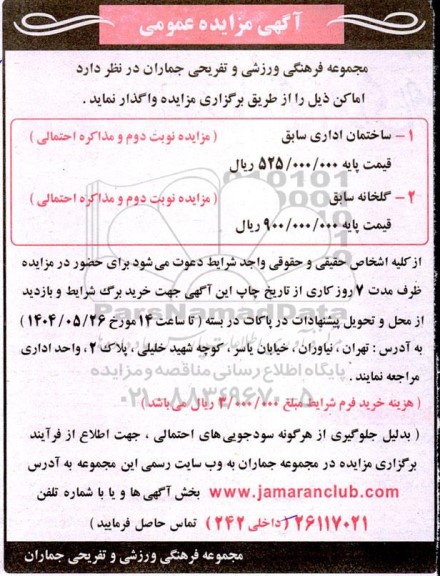 آگهی مزایده عمومی
مجموعه فرهنگی ورزشی و تفریحی جماران در نظر دارد
اماکن ذیل را از طریق برگزاری مزایده واگذار نماید .
۱- ساختمان اداری سابق ( مزایده نوبت دوم و مذاکره احتمالی )
قیمت پایه ۵۲۵/۰۰۰/۰۰۰ ریال
۲- گلخانه سابق ( مزایده نوبت دوم و مذاکره احتمالی )
قیمت پایه ۹۰۰/۰۰۰/۰۰۰ ریال
از کلیه اشخاص حقیقی و حقوقی واجد شرایط دعوت می شود برای حضور در مزایده
ظرف مدت ۷ روز کاری از تاریخ چاپ این آگهی جهت خرید برگ شرایط و بازدید
از محل و تحویل پیشنهادات در پاکات در بسته ( تا ساعت ۱۴ مورخ ۱۴۰۴/۰۵/۲۶ )
به آدرس : تهران ، نیاوران ، خیابان یاسر ، کوچه شهید خلیلی ، پلاک ۲ ، واحد اداری
مراجعه نمایند .
( هزینه خرید فرم شرایط مبلغ ۳/۰۰۰/۰۰۰ ریال می باشد )
( بدلیل جلوگیری از هرگونه سودجویی های احتمالی ، جهت اطلاع از فرآیند
برگزاری مزایده در مجموعه جماران به وب سایت رسمی این مجموعه به آدرس
www.jamaranclub.com بخش آگهی ها و یا با شماره تلفن
۲۶۱۱۷۰۲۱ ( داخلی ۲۴۲ ) تماس حاصل فرمایید )
مجموعه فرهنگی ورزشی و تفریحی جماران
ParsNamadData
پایگاه اطلاع رسانی مناقصه و مزایده
۰۲۱-۸۸۳۴۹۶۷۰-۵